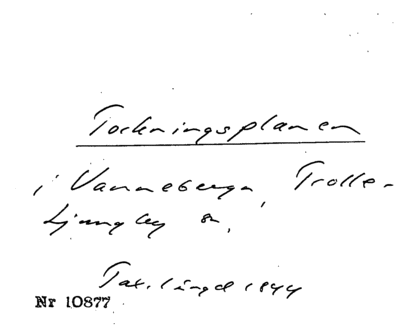 Torkningsplanen
i Vanneberga, Trolle-
Ljungby sn,
Tax.längd 1944
Nr 10877